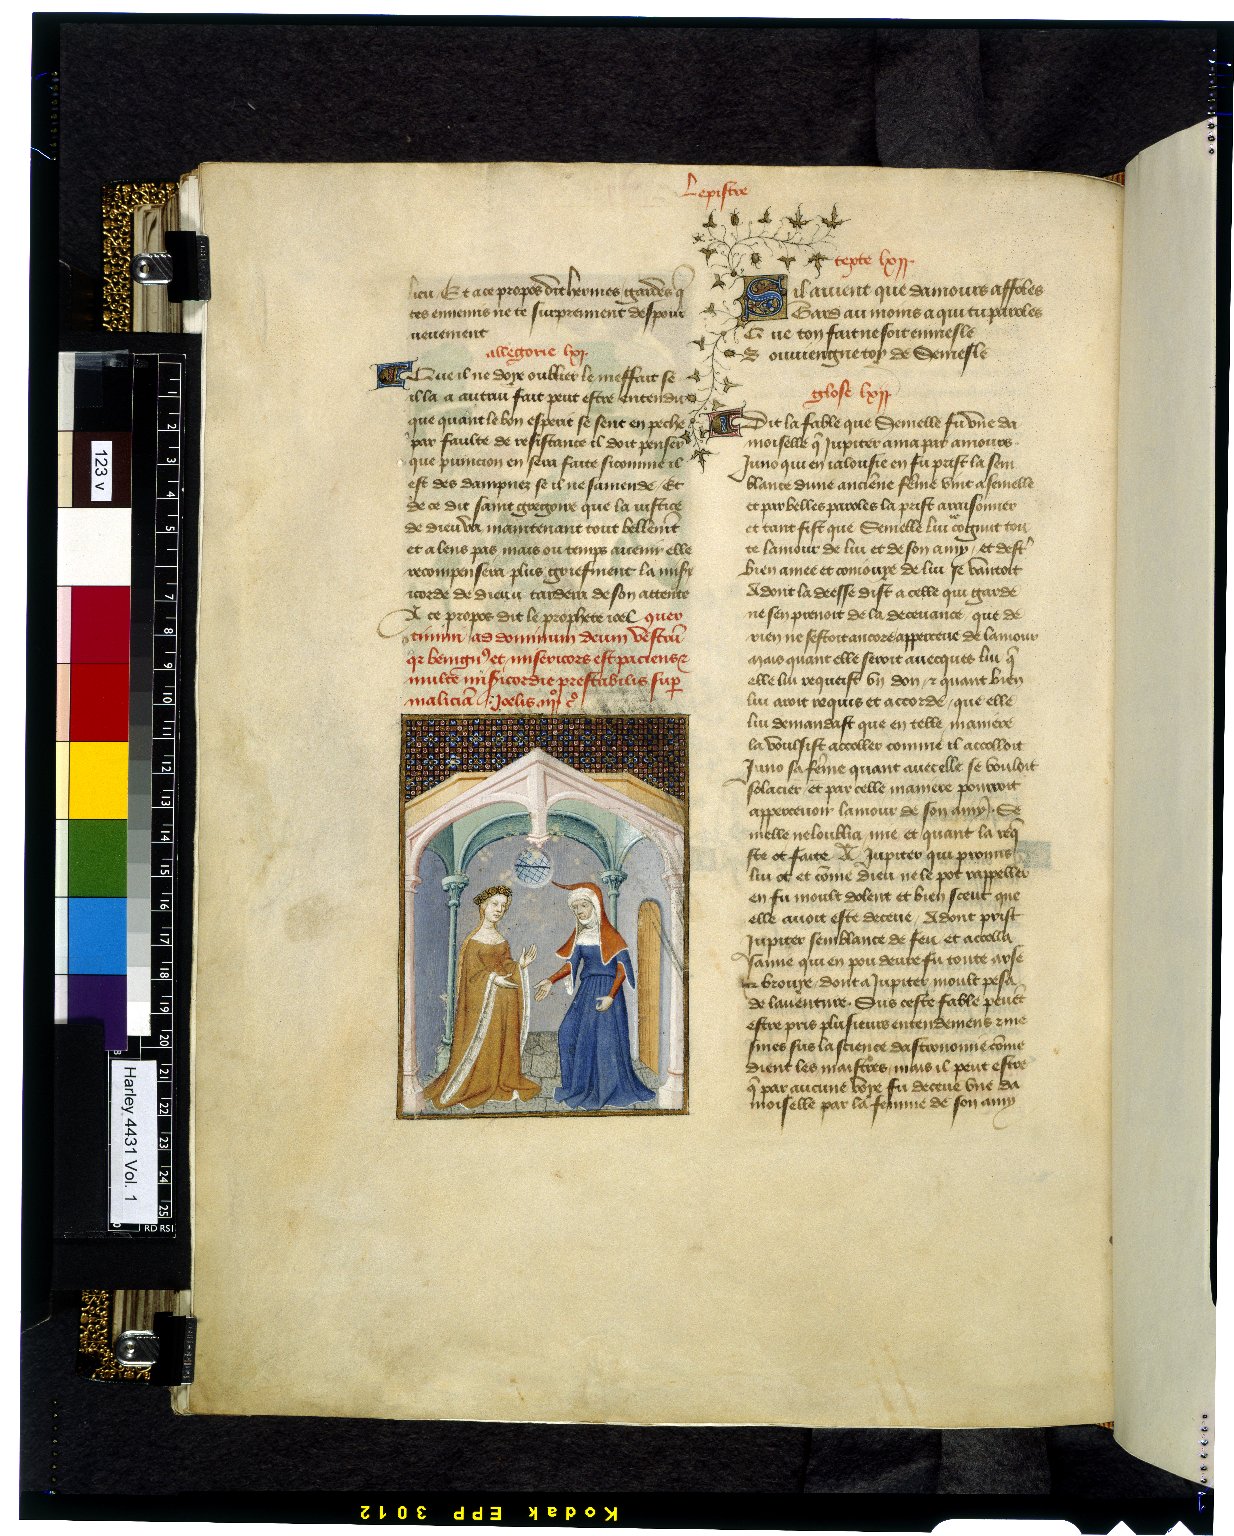 Lepistre
lieu / Et a ce propos dit hermes gardes q̄
tes ennemis ne te surprennent despour
ueuement
allegorie lxj.
Que il ne doye oublier le meffait se
il la a autrui fait peut estre entendu
que quant le bon esperit se sent en peche
par faulte de resistance il doit penser
que punicion en sera faite si comme il
est des dampnez se il ne samende / Et
de ce dit saint gregoire que la iustice
de dieu va maintenant tout bellemēt
et a lens pas mais ou temps auenir elle
recompensera plus griefment la mise
ricorde de dieu u tardera de son attente
A ce propos dit le prophete ioel quer
timini ad dominum deum vestrū
qr benignꝰ et misericors est paciens ⁊
multe misericordie prestabilis sup
maliciā / Joelis .ijº. cº
texte lxij.
Sil auient que damours affoles
Gard au moins a qui tu paroles
Que ton fait ne soit ennuesle
Souuiengne toy de Semesle
glose lxij
Dit la fable que Semelle fu vne da
moiselle q̄ Jupiter ama par amours.
Juno qui en ialousie en fu prist la sem
blance dune anciēne fēme vint a semelle
et par belles paroles la prist a raisonner
et tant fist que Semelle lui cōgnut tou
te lamour de lui et de son amy / et destr̄
bien amee et conioure de lui se vantoit
Adont la deesse dist a celle qui garde
ne sen prenoit de la deceuance / que de
rien ne sestoit ancore apperceue de lamour
Mais quant elle seroit auecques lui q̄
elle lui requeist vn don / ⁊ quant bien
lui aroit requis et accorde / que elle
lui demandast que en telle maniere
la voulsist accoller comme il accolloit
Juno sa fēme quant auec elle se vouloit
solacier / et par celle maniere pourroit
apperceuoir lamour de son amy / Se
melle ne loublia mie et quant la req̄
ste ot faite A Jupiter qui promis
lui ot et cōme dieu ne le pot rappeller
en fu moult dolent et bien sceut que
elle auoit este deceue / Adont prist
Jupiter semblance de feu et accolla
samie qui en pou deure fu toute arse
et bruye / dont a Jupiter moult pesa
de lauenture. Sus ceste fable peuēt
estre pris plusieurs entendemens ⁊ me
smes sus la science dastronomie cōme
dient les maistres / mais il peut estre
q̄ par aucune voye fu deceue vne da
moiselle par la femme de son amy
123 v
Harley 4431 Vol. 1
1
2
3
4
5
6
7
8
9
10
11
12
13
14
15
16
17
18
19
20
21
22
23
24
25
RD RSI
Kodak EPP 3012